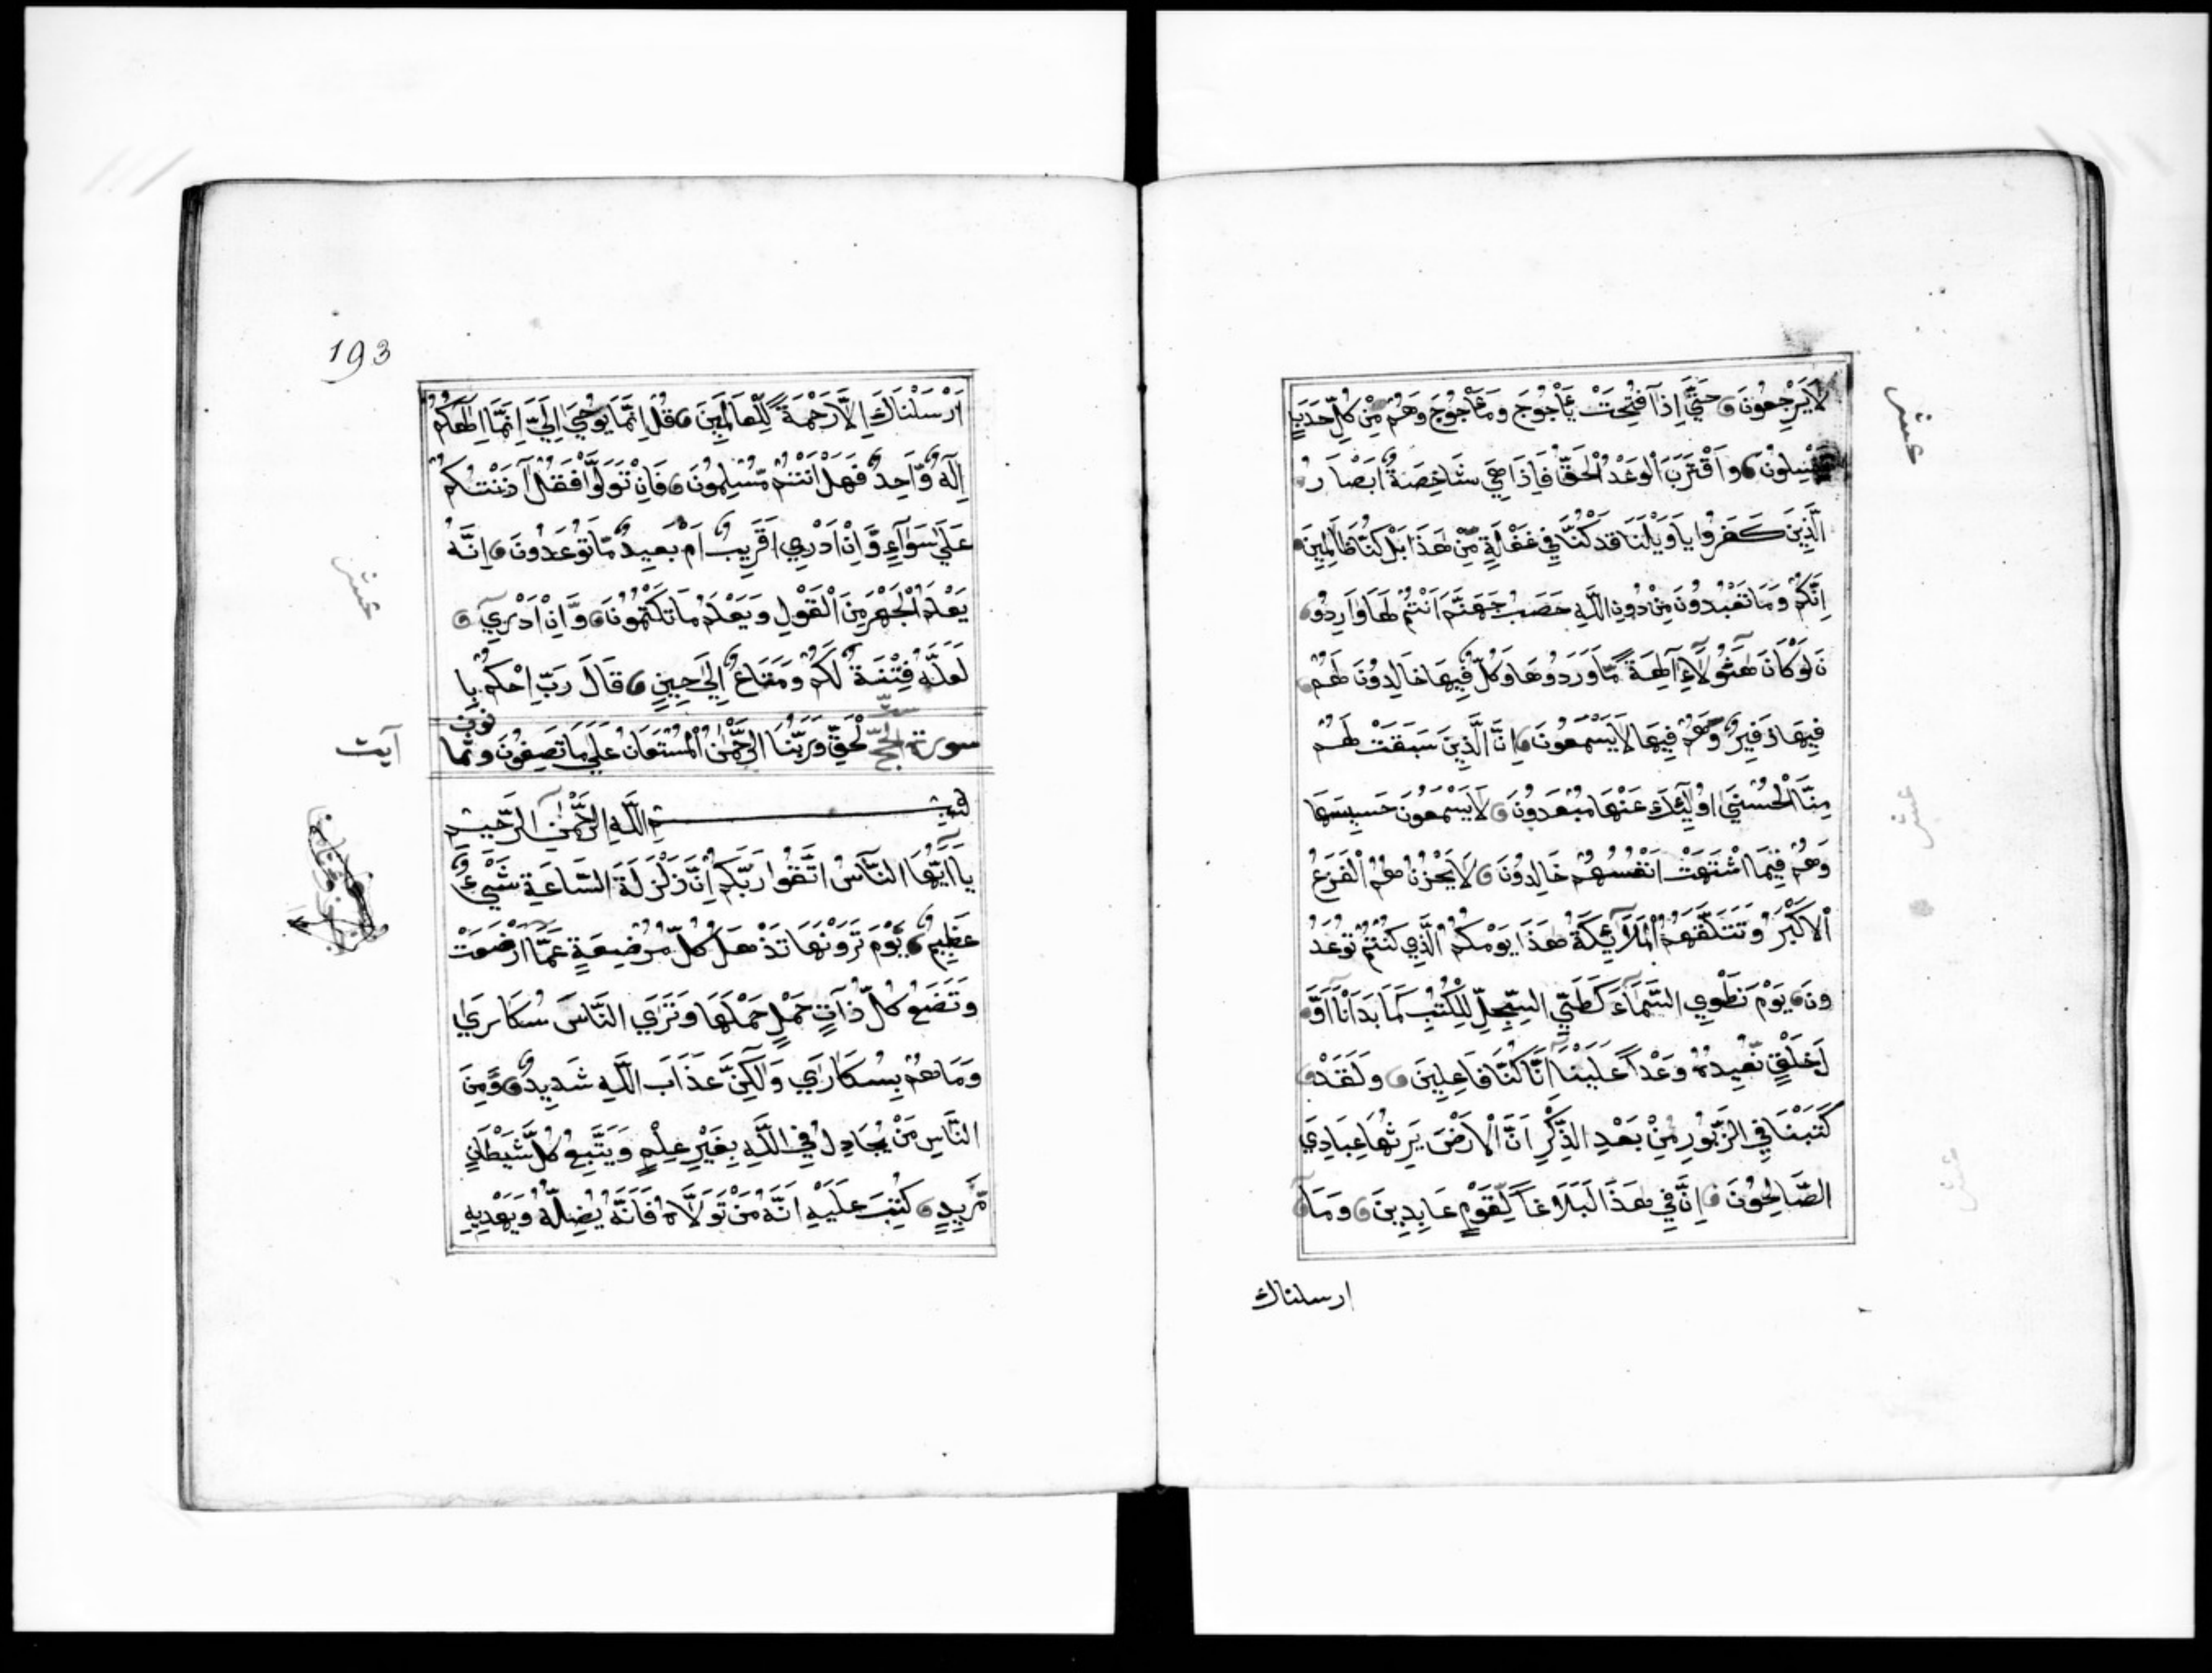 لَا يَرْجِعُونَ حَتَّي اِذَآ فُتِحَتْ يَأْجُوجَ وَمَأْجُوجَ وَهُمْ مِّنْ كُلِّ حَدَبٍ
يَنْسِلُوْنَ وَاَقْتَرَبَ الْوَعْدُ الْحَقُّ فَاِذَا هِيَ شَاخِصَةٌ اَبْصَارُ
الَّذِينَ كَفَرُوا يَاوَيْلَنَا قَدْ كُنَّا فِي غَفْلَةٍ مِّنْ هَذَا بَلْ كُنَّا ظَالِمِينَ
اِنَّكُمْ وَمَا تَعْبُدُونَ مِنْ دُونِ اللَّهِ حَصَبُ جَهَنَّمَ اَنْتُمْ لَهَا وَارِدُو
نَ لَوْ كَانَ هَٓؤُلَآءِ آلِهَةً مَّا وَرَدُوهَا وَكُلٌّ فِيهَا خَالِدُونَ لَهُمْ
فِيهَا زَفِيرٌ وَهُمْ فِيهَا لَا يَسْمَعُونَ اِنَّ الَّذِينَ سَبَقَتْ لَهُمْ
مِنَّا الْحُسْنَيٰ اُولَٓئِكَ عَنْهَا مُبْعَدُونَ لَا يَسْمَعُونَ حَسِيسَهَا
وَهُمْ فِيمَا اشْتَهَتْ اَنْفُسُهُمْ خَالِدُونَ لَا يَحْزُنُهُمُ الْفَزَعُ
الْاَكْبَرُ وَتَتَلَقَّهُمُ الْمَلَآئِكَةُ هَذَا يَوْمُكُمُ الَّذِي كُنْتُمْ تُوعَدُ
ونَ يَوْمَ نَطْوِي السَّمَآءَ كَطَيِّ السِّجِلِّ لِلْكُتُبِ كَمَا بَدَاْنَآ اَوَّ
لَ خَلْقٍ نُّعِيدُهُ وَعْداً عَلَيْنَا اِنَّا كُنَّا فَاعِلِينَ وَلَقَدْ
كَتَبْنَا فِي الزَّبُورِ مِنْ بَعْدِ الذِّكْرِ اَنَّ الْاَرْضَ يَرِثُهَا عِبَادِيَ
الصَّالِحُونَ اِنَّ فِي هَذَا لَبَلَاغاً لِّقَوْمٍ عَابِدِينَ وَمَآ
ارسلناك
عشر
عشر
عشر
193
اَرْسَلْنَاكَ اِلَّا رَحْمَةً لِّلْعَالَمِينَ قُلْ اِنَّمَا يُوحَيٓ اِلَيَّ اَنَّمَا اِلَهُكُمْ
اِلَهٌ وَّاحِدٌ فَهَلْ اَنْتُمْ مُّسْلِمُونَ فَاِنْ تَوَلَّوْا فَقُلْ آذَنْتُكُمْ
عَلَيٰ سَوَآءٍ وَّاِنْ اَدْرِي اَقَرِيبٌ اَمْ بَعِيدٌ مَّا تُوعَدُونَ اِنَّهُ
يَعْلَمُ الْجَهْرَ مِنَ الْقَوْلِ وَيَعْلَمُ مَا تَكْتُمُونَ وَاِنْ اَدْرِي
لَعَلَّهُ فِتْنَةٌ لَّكُمْ وَمَتَاعٌ اِلَيٰ حِينٍ قَالَ رَبِّ احْكُمْ بِا
سورة الحجّ لْحَقِّ وَرَبُّنَا الرَّحْمٰنُ الْمُسْتَعَانُ عَلَيٰ مَا تَصِفُونَ وثما نون
آيت
بسم اللَّهِ الرَّحْمٰنِ الرَّحيم
يَآ اَيُّهَا النَّاسُ اتَّقُوا رَبَّكُمْ اِنَّ زَلْزَلَةَ السَّاعَةِ شَيْءٌ
عَظِيمٌ يَوْمَ تَرَوْنَهَا تَذْهَلُ كُلُّ مُرْضِعَةٍ عَمَّا اَرْضَعَتْ
وَتَضَعُ كُلُّ ذَاتِ حَمْلٍ حَمْلَهَا وَتَرَي النَّاسَ سُكَارَيٰ
وَمَا هُمْ بِسُكَارَيٰ وَلَكِنَّ عَذَابَ اللَّهِ شَدِيدٌ وَّمِنَ
النَّاسِ مَنْ يُجَادِلُ فِي اللَّهِ بِغَيْرِ عِلْمٍ وَيَتَّبِعُ كُلَّ شَيْطَٰنٍ
مَّرِيدٍ كُتِبَ عَلَيْهِ اَنَّهُ مَنْ تَوَلَّاهُ فَاَنَّهُ يُضِلُّهُ وَيَهْدِيهِ
عشر